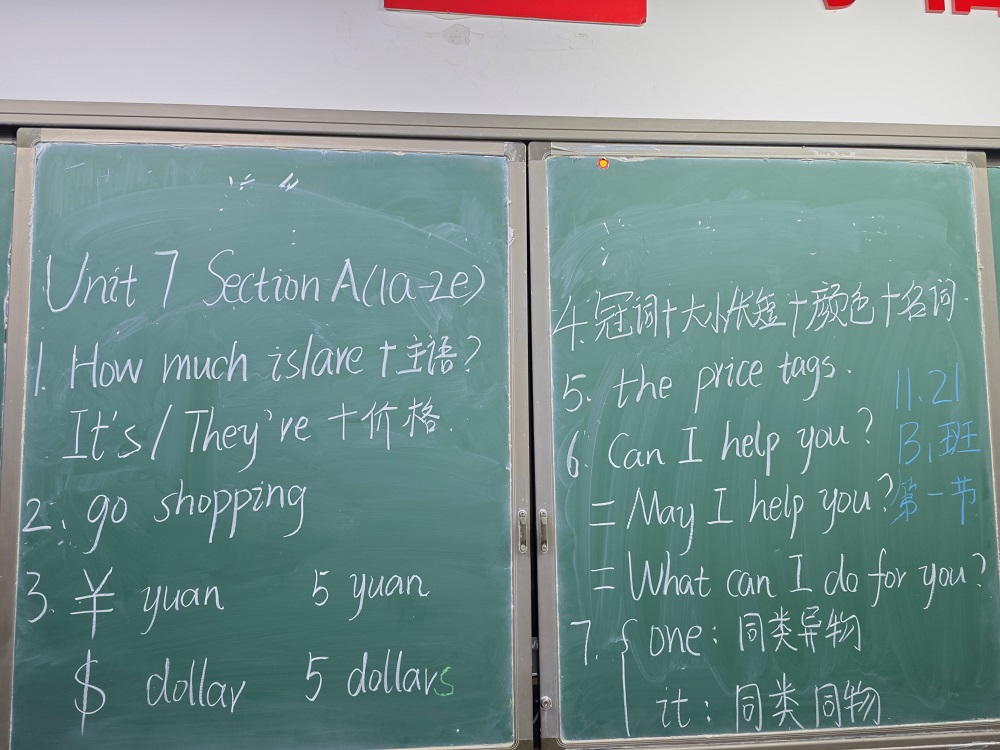 Unit 7 Section A(1a-2e)
1. How much is/are + 主语?
It's / They're + 价格.
2. go shopping
3. ¥ yuan 5 yuan
$ dollar 5 dollars
4. 冠词+大小长短+颜色+名词.
5. the price tags.
6. Can I help you?
= May I help you?
= What can I do for you?
7. { one: 同类异物
it: 同类同物
11.21
B1班
第一节